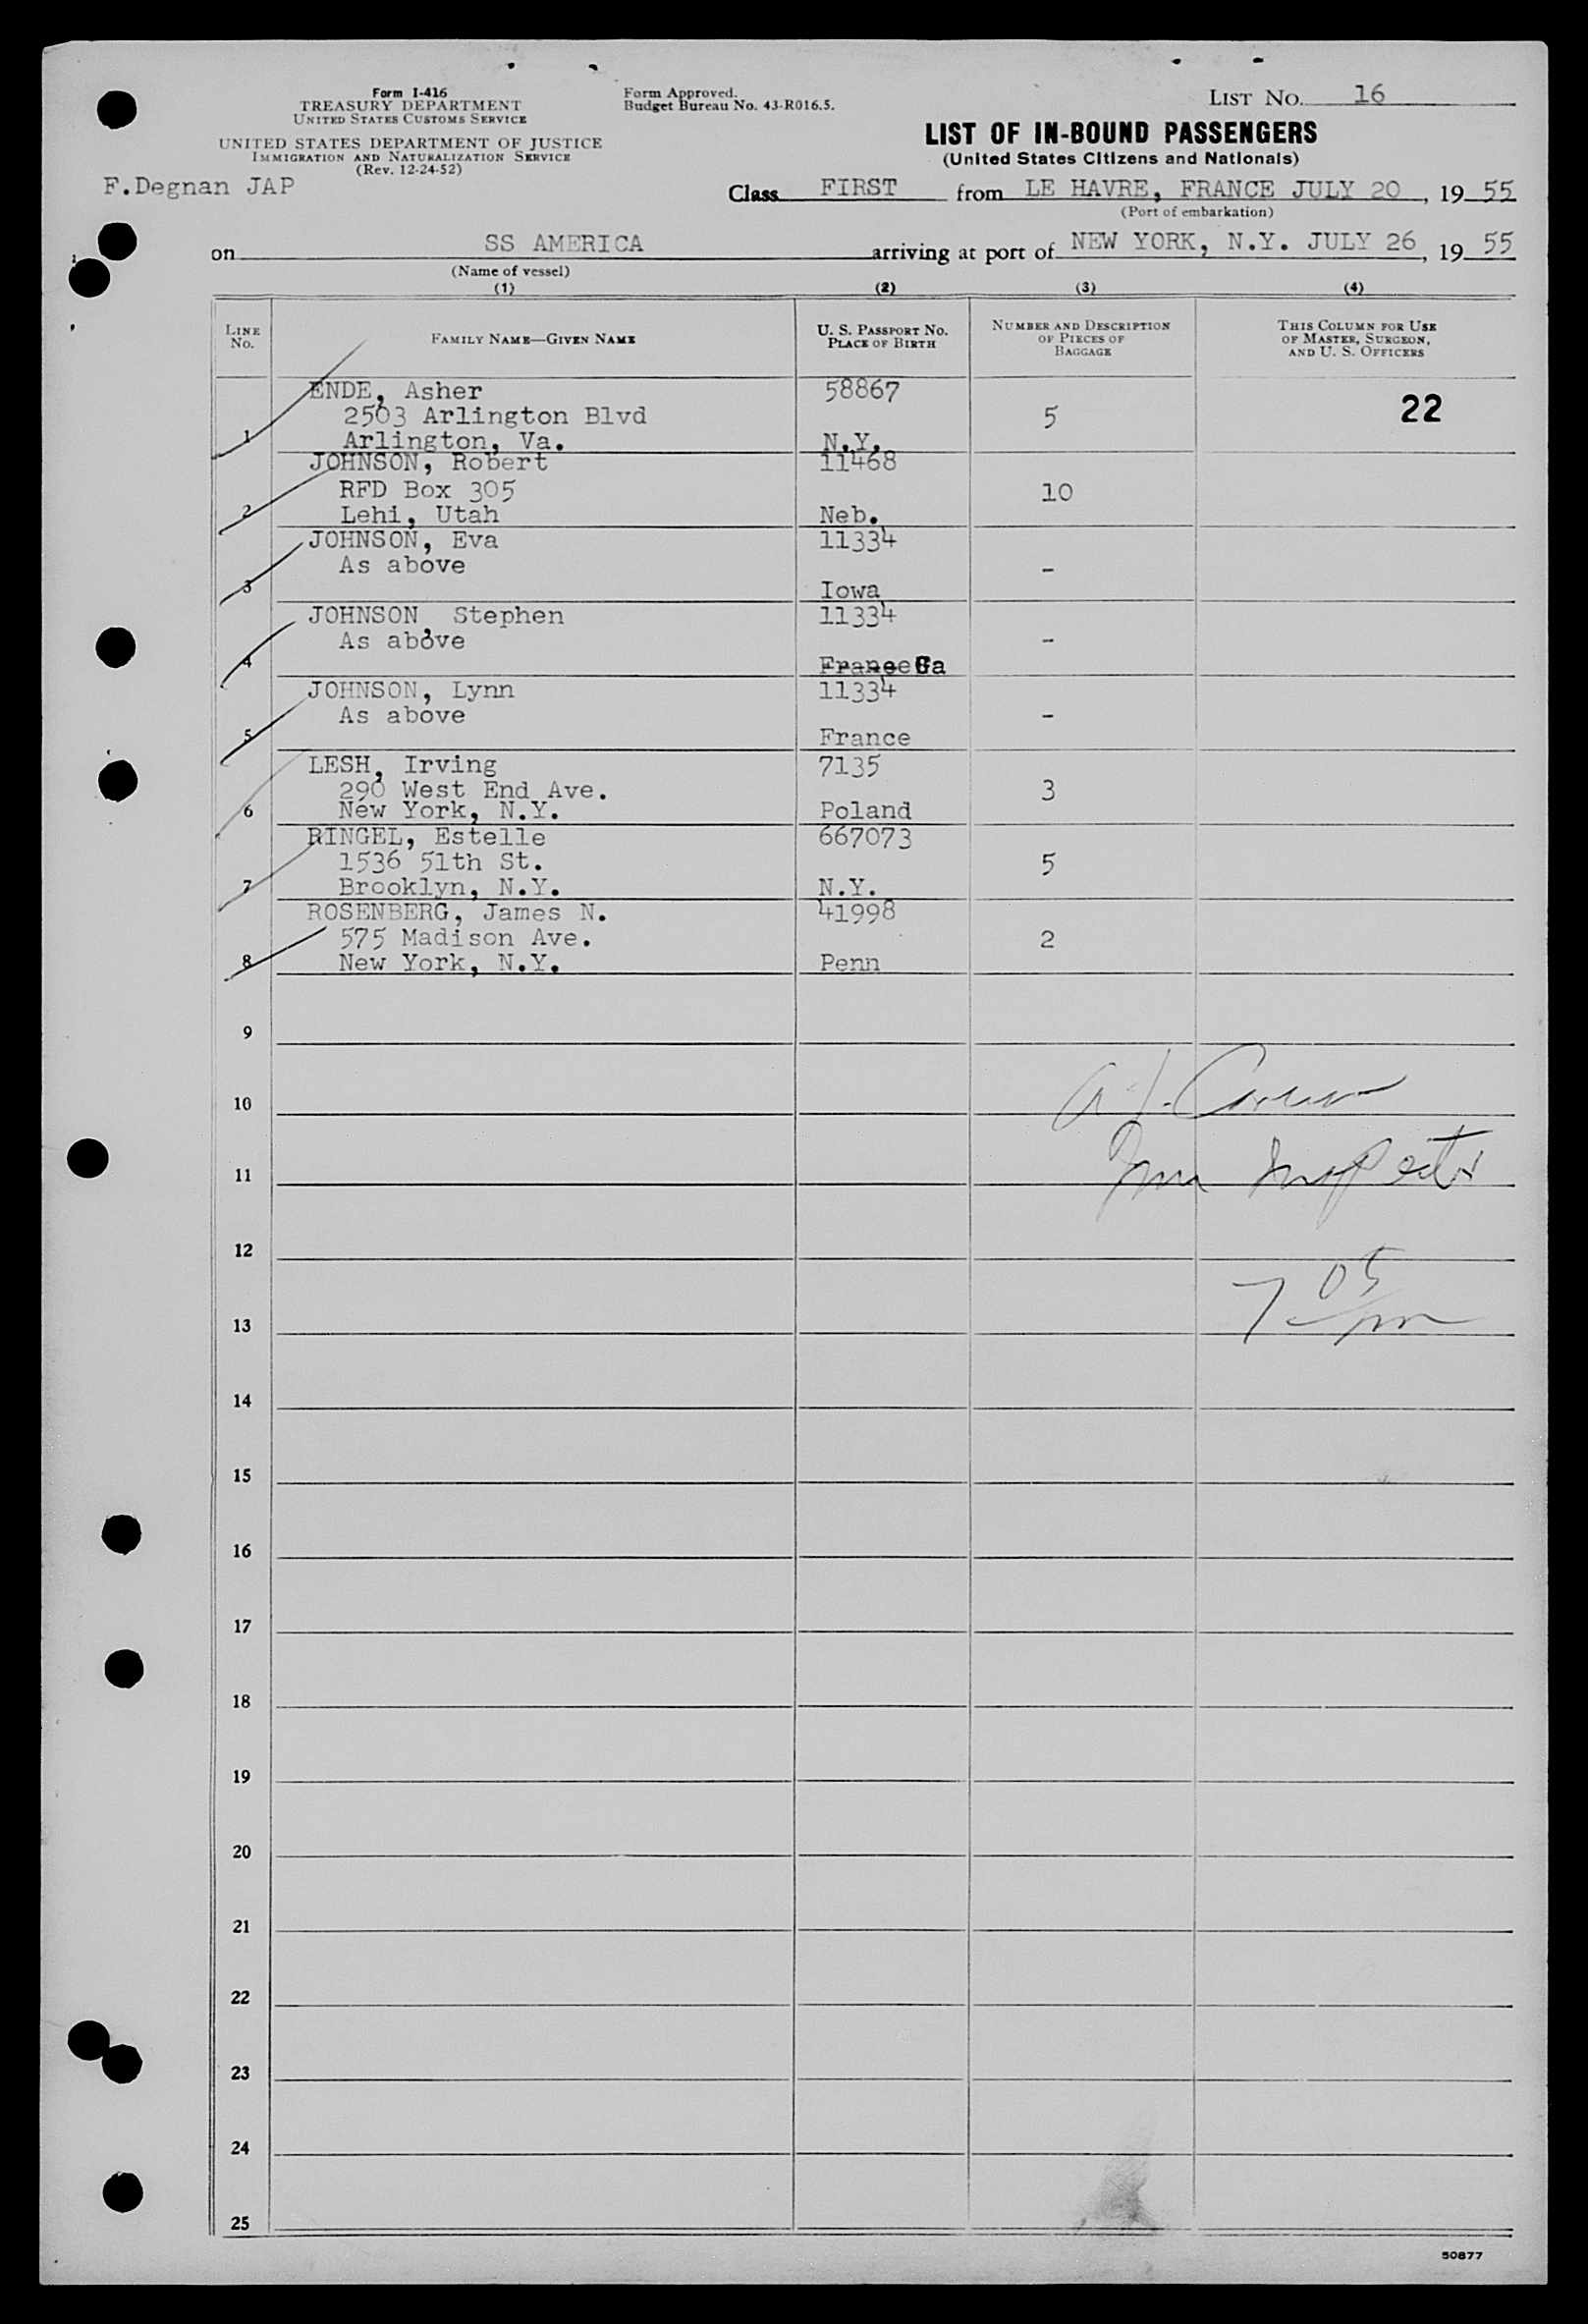 Form I-416
TREASURY DEPARTMENT
UNITED STATES CUSTOMS SERVICE
UNITED STATES DEPARTMENT OF JUSTICE
IMMIGRATION AND NATURALIZATION SERVICE
(Rev. 12-24-52)
Form Approved.
Budget Bureau No. 43-R016.5.
LIST No. 16
LIST OF IN-BOUND PASSENGERS
(United States Citizens and Nationals)
F.Degnan JAP
Class FIRST from LE HAVRE, FRANCE JULY 20, 19 55
(Port of embarkation)
on SS AMERICA arriving at port of NEW YORK, N.Y. JULY 26, 19 55
(Name of vessel)
(1) (2) (3) (4)
LINE No.
FAMILY NAME—GIVEN NAME
U. S. PASSPORT NO.
PLACE OF BIRTH
NUMBER AND DESCRIPTION
OF PIECES OF
BAGGAGE
THIS COLUMN FOR USE
OF MASTER, SURGEON,
AND U. S. OFFICERS
ENDE, Asher 58867
2503 Arlington Blvd 5 22
1 Arlington, Va. N.Y.
JOHNSON, Robert 11468
RFD Box 305 10
2 Lehi, Utah Neb.
JOHNSON, Eva 11334
As above -
3 Iowa
JOHNSON, Stephen 11334
As above -
4 France Ga
JOHNSON, Lynn 11334
As above -
5 France
LESH, Irving 7135
290 West End Ave. 3
6 New York, N.Y. Poland
RINGEL, Estelle 667073
1536 51th St. 5
7 Brooklyn, N.Y. N.Y.
ROSENBERG, James N. 41998
575 Madison Ave. 2
8 New York, N.Y. Penn
9
10
11 Imm Inspector
12
13 7 05 pm
14
15
16
17
18
19
20
21
22
23
24
25
50877